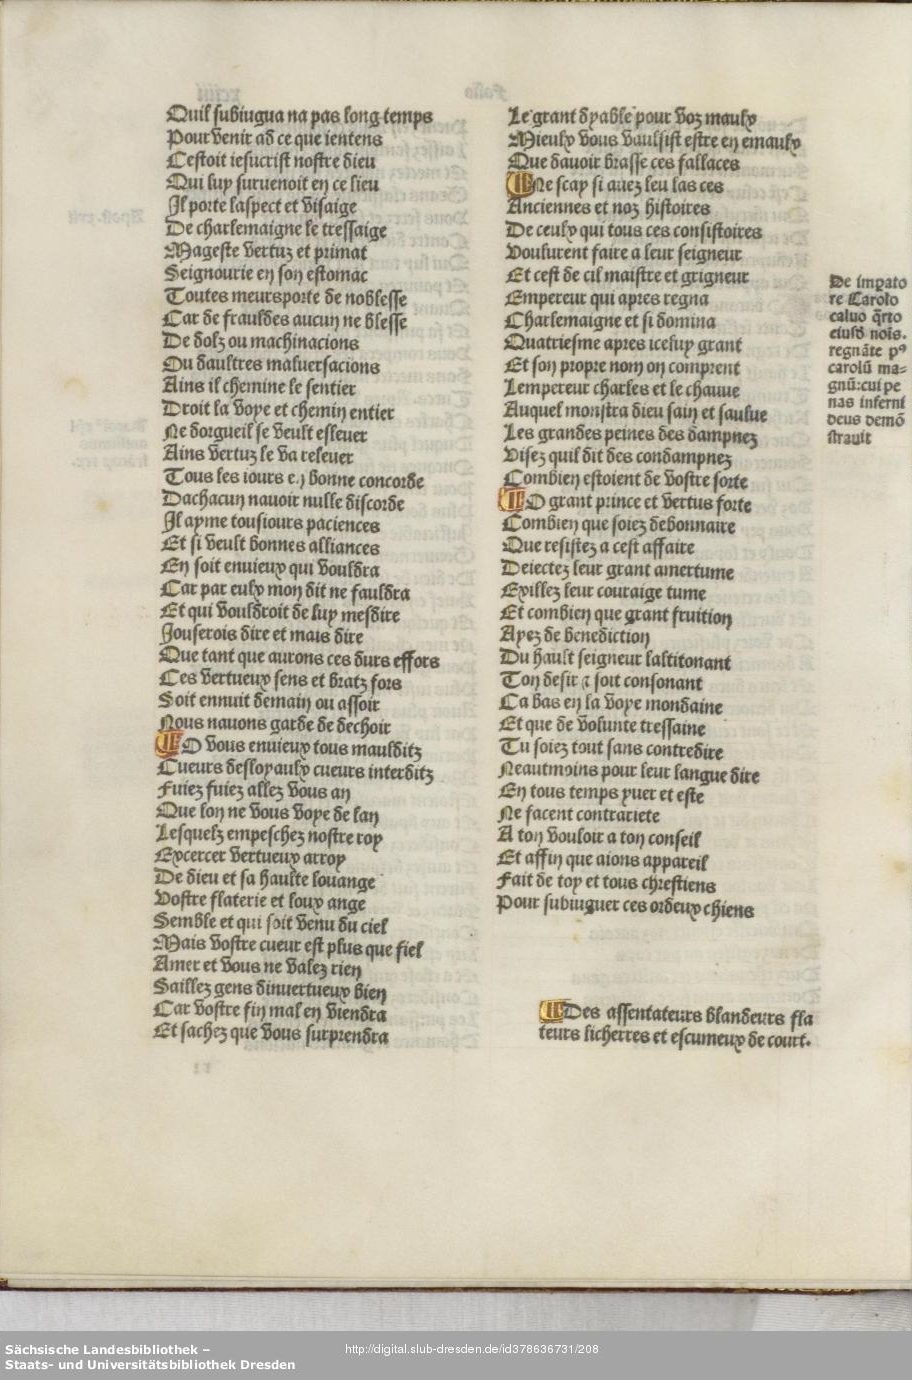 Quil subiugua na pas long temps
Pour venir ad ce que ientens
Cestoit iesucrist nostre dieu
Qui luy suruenoit en ce lieu
Il porte laspect et visaige
De charlemaigne le tressaige
Mageste vertuz et primat
Seignourie en son estomac
Toutes meurs porte de noblesse
Car de frauldes aucun ne blesse
De dolz ou machinacions
Ou daultres maluersacions
Ains il chemine le sentier
Droit la voye et chemin entier
Ne dorgueil se veult esleuer
Ains vertuz le va releuer
Tous les iours en bonne concorde
Dachacun nauoir nulle discorde
Il ayme tousiours paciences
Et si veult bonnes alliances
En soit enuieux qui vouldra
Car par eulx mon dit ne fauldra
Et qui vouldroit de luy mesdire
Jouserois dire et mais dire
Que tant que aurons ces durs effors
Ces vertueux sens et bratz fors
Soit ennuit demain ou assoir
Nous nauons garde de dechoir
O vous enuieux tous maulditz
Cueurs desloyaulx cueurs interditz
Fuiez fuiez allez vous an
Que lon ne vous voye de lan
Lesquelz empeschez nostre roy
Excercer vertueux arroy
De dieu et sa haulte louange
Vostre flaterie et loux ange
Semble et qui soit venu du ciel
Mais vostre cueur est plus que fiel
Amer et vous ne valez rien
Saillez gens dinuertueux bien
Car vostre fin mal en viendra
Et sachez que vous surprendra
Le grant dyable pour voz maulx
Mieulx vous vaulsist estre en emaulx
Que dauoir brasse ces fallaces
Ne scay si auez leu las ces
Anciennes et noz histoires
De ceulx qui tous ces consistoires
Voulurent faire a leur seigneur
Et cest de cil maistre et grigneur
Empereur qui apres regna
Charlemaigne et si domina
Quatriesme apres iceluy grant
Et son propre nom on comprent
Lempereur charles et le chauue
Auquel monstra dieu sain et saulue
Les grandes peines des dampnez
Visez quil dit des condampnez
Combien estoient de vostre sorte
O grant prince et vertus forte
Combien que soiez debonnaire
Que resistez a cest affaire
Deiectez leur grant amertume
Exillez leur couraige tume
Et combien que grant fruition
Ayez de benediction
Du hault seigneur laltitonant
Ton desir a soit consonant
Ca bas en la voye mondaine
Et que de volunte tressaine
Tu soiez tout sans contredire
Neautmoins pour leur langue dire
En tous temps yuer et este
Ne facent contrariete
A ton vouloir a ton conseil
Et affin que aions appareil
Fait de toy et tous chrestiens
Pour subiuguer ces ordeux chiens
De impato
re Carolo
caluo q̄rto
eiusd nois.
regnāte pꝰ
carolū ma=
gnū:cui pe
nas inferni
deus demō
strauit
Des assentateurs blandeurs fla
teurs licherres et escumeux de court.
Sächsische Landesbibliothek –
Staats- und Universitätsbibliothek Dresden
http://digital.slub-dresden.de/id378636731/208